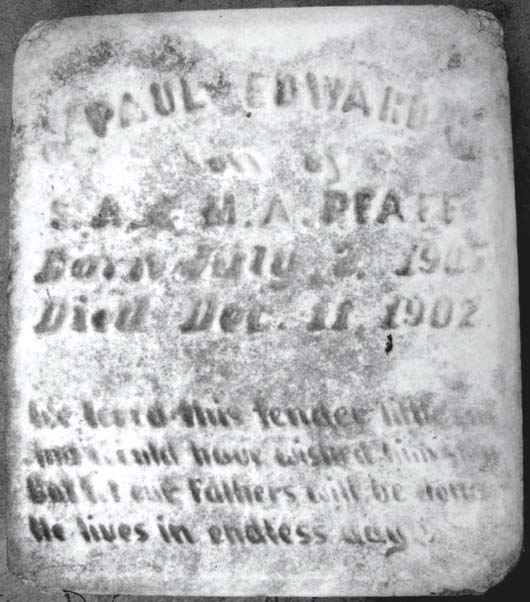 PAUL EDWARD
Son of
S.A. & M.A. PFAFF
Born July 2, 
Died Dec. 11, 1902
We loved this tender little one
And would have wished him stay
But let our Fathers will be done
He lives in endless day